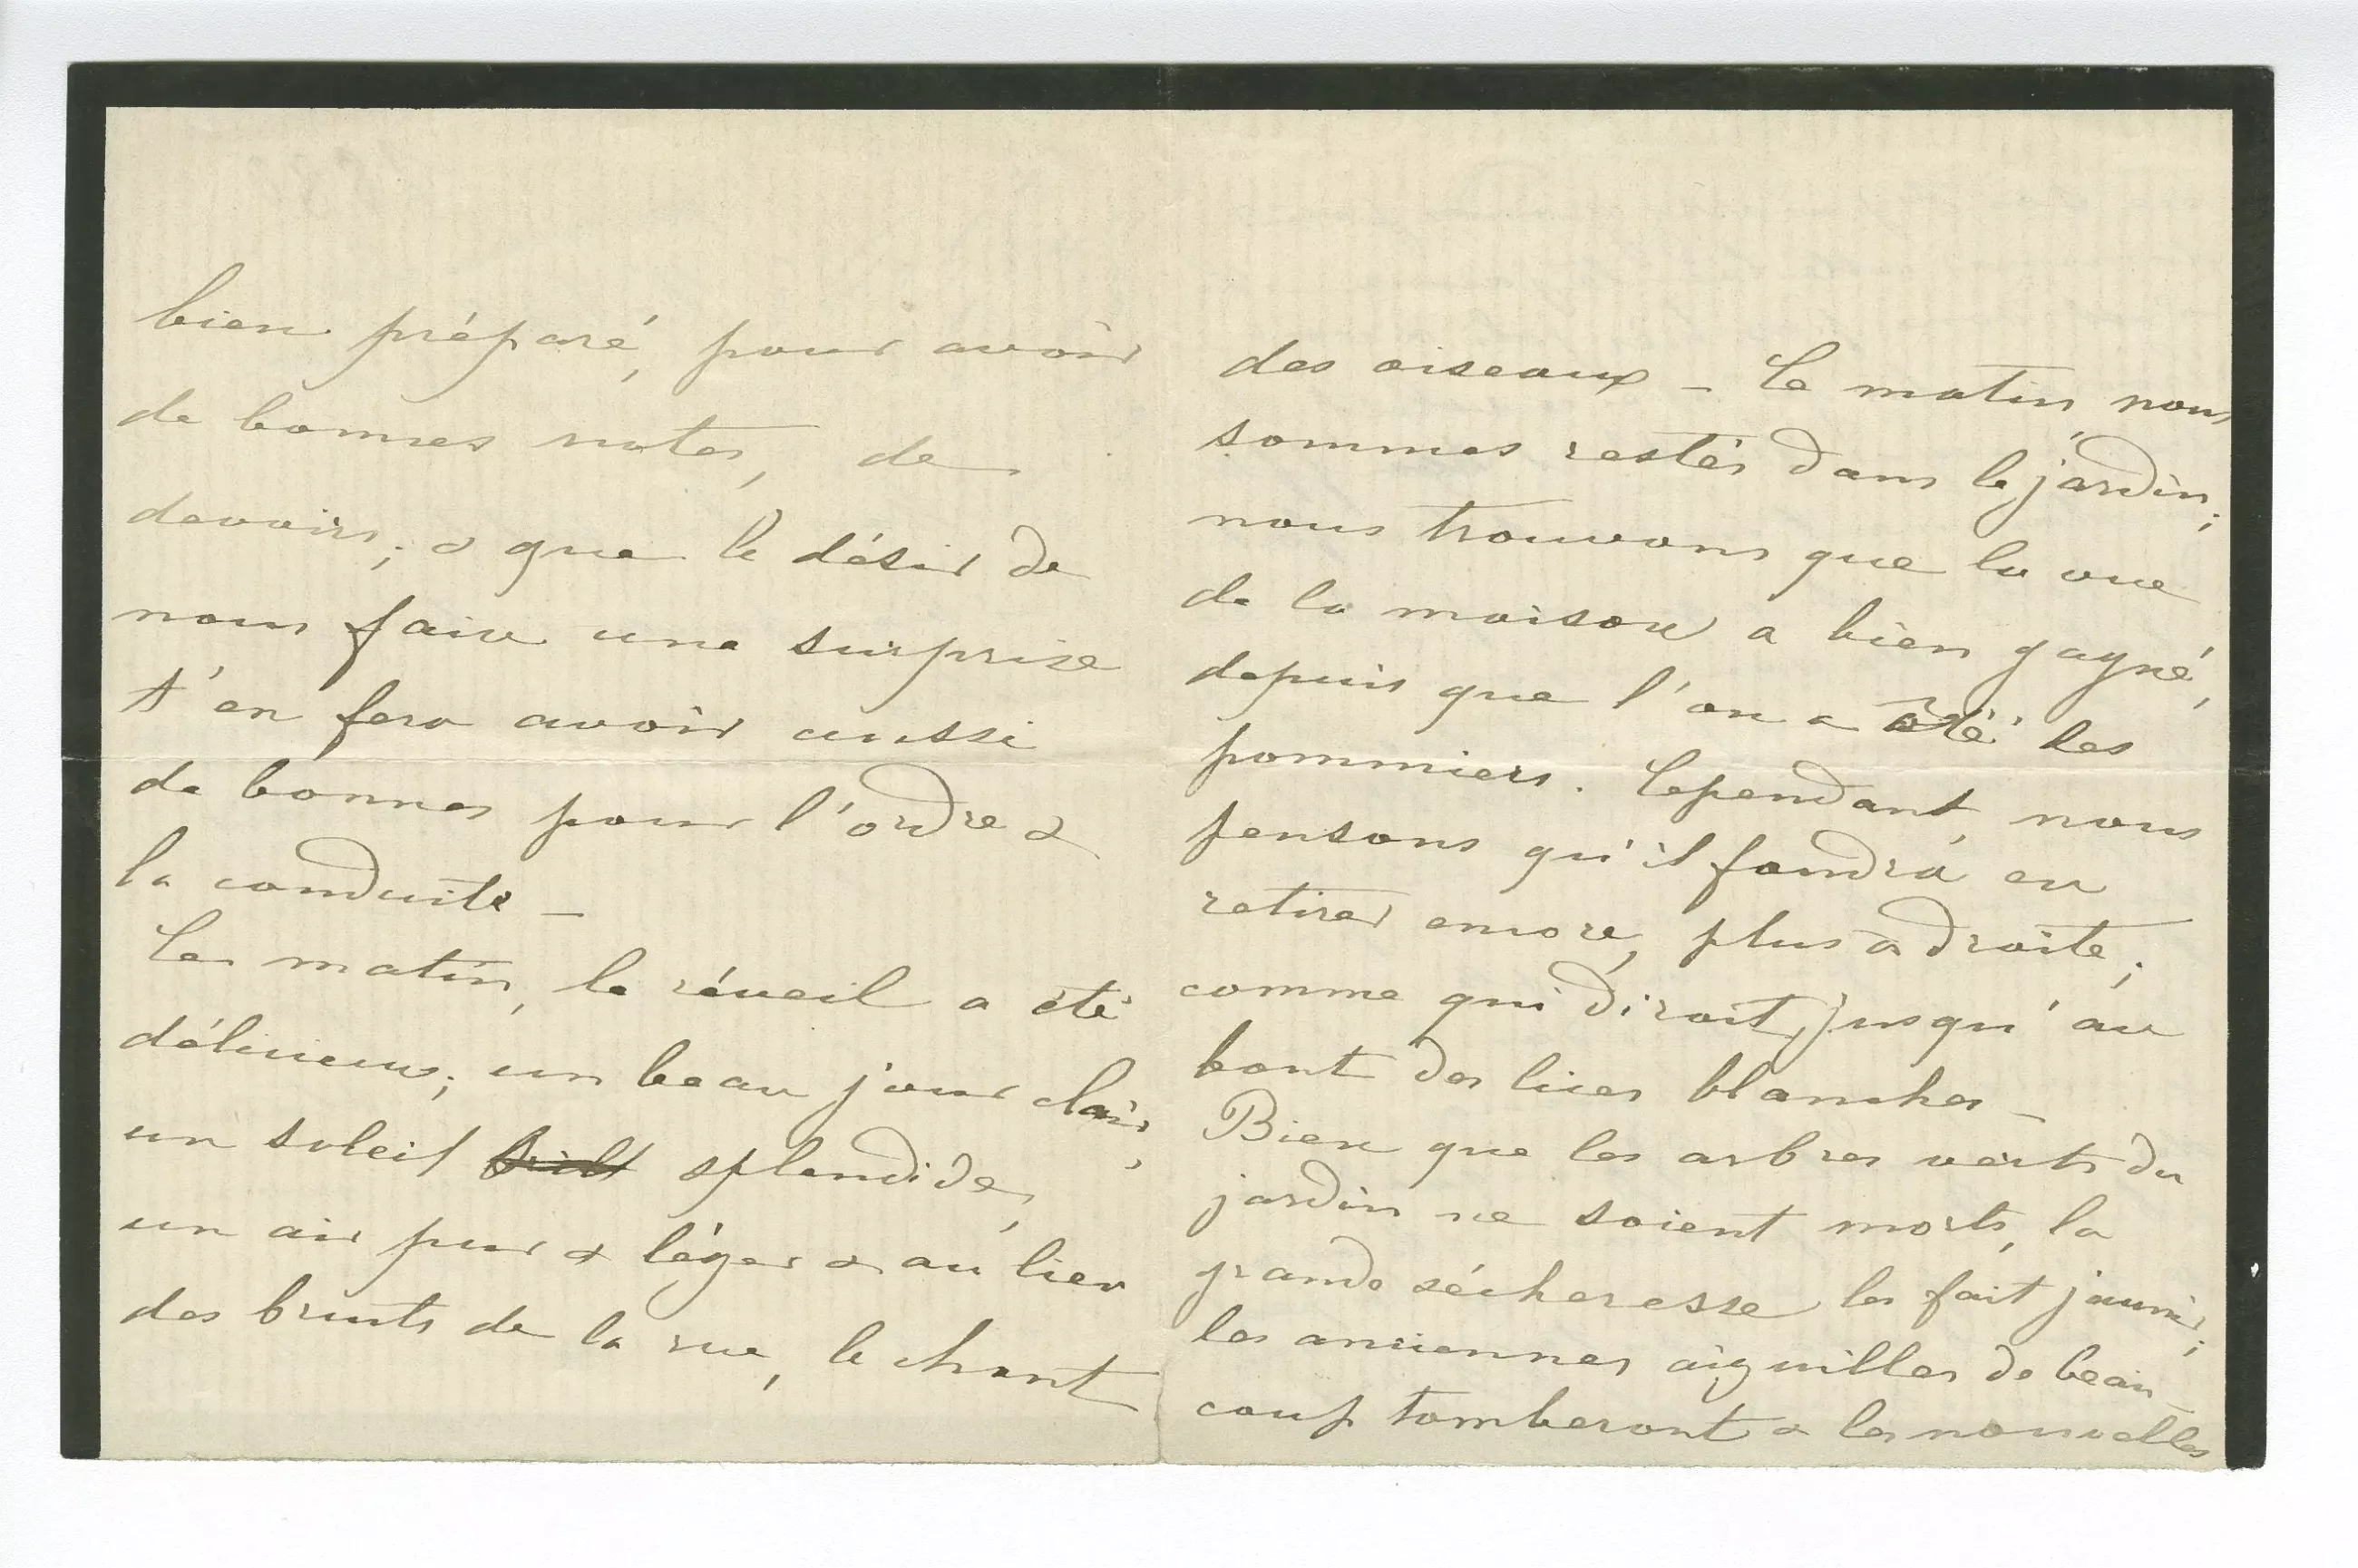 bien préparé, pour avoir
de bonnes notes, de
devoirs; & que le désir de
nous faire une surprise
t'en fera avoir aussi
de bonnes pour l'ordre &
la conduite –
Ce matin, le réveil a été
délicieux; un beau jour clair,
un soleil brill splendide,
un air pur & léger & au lieu
des bruits de la rue, le chant
des oiseaux – Ce matin, nous
sommes restés dans le jardin;
nous trouvons que la vue
de la maison a bien gagné,
depuis que l'on a ôté les
pommiers. Cependant, nous
pensons qu'il faudra en
retirer encore, plus à droite;
comme qui dirait, jusqu'au
bout des lices blanches –
Bien que les arbres verts du
jardin ne soient morts, la
grande sécheresse les fait jaunir;
les anciennes aiguilles de beau-
coup tomberont & les nouvelles